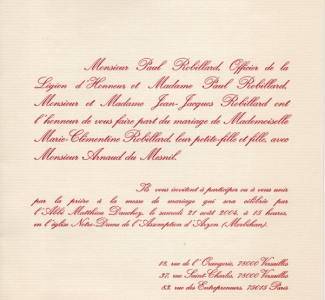 Monsieur Paul Robillard, Officier de la
Légion d'Honneur et Madame Paul Robillard,
Monsieur et Madame Jean-Jacques Robillard ont
l'honneur de vous faire part du mariage de Mademoiselle
Marie-Clémentine Robillard, leur petite-fille et fille, avec
Monsieur Arnaud du Mesnil.
Ils vous invitent à participer ou à vous unir
par la prière à la messe de mariage qui sera célébrée par
l'Abbé Matthieu Dauchez, le samedi 21 août 2004, à 15 heures,
en l'église Notre-Dame de l'Assomption d'Arzon (Morbihan).
18, rue de l'Orangerie, 78000 Versailles
37, rue Saint-Charles, 78000 Versailles
83, rue des Entrepreneurs, 75015 Paris